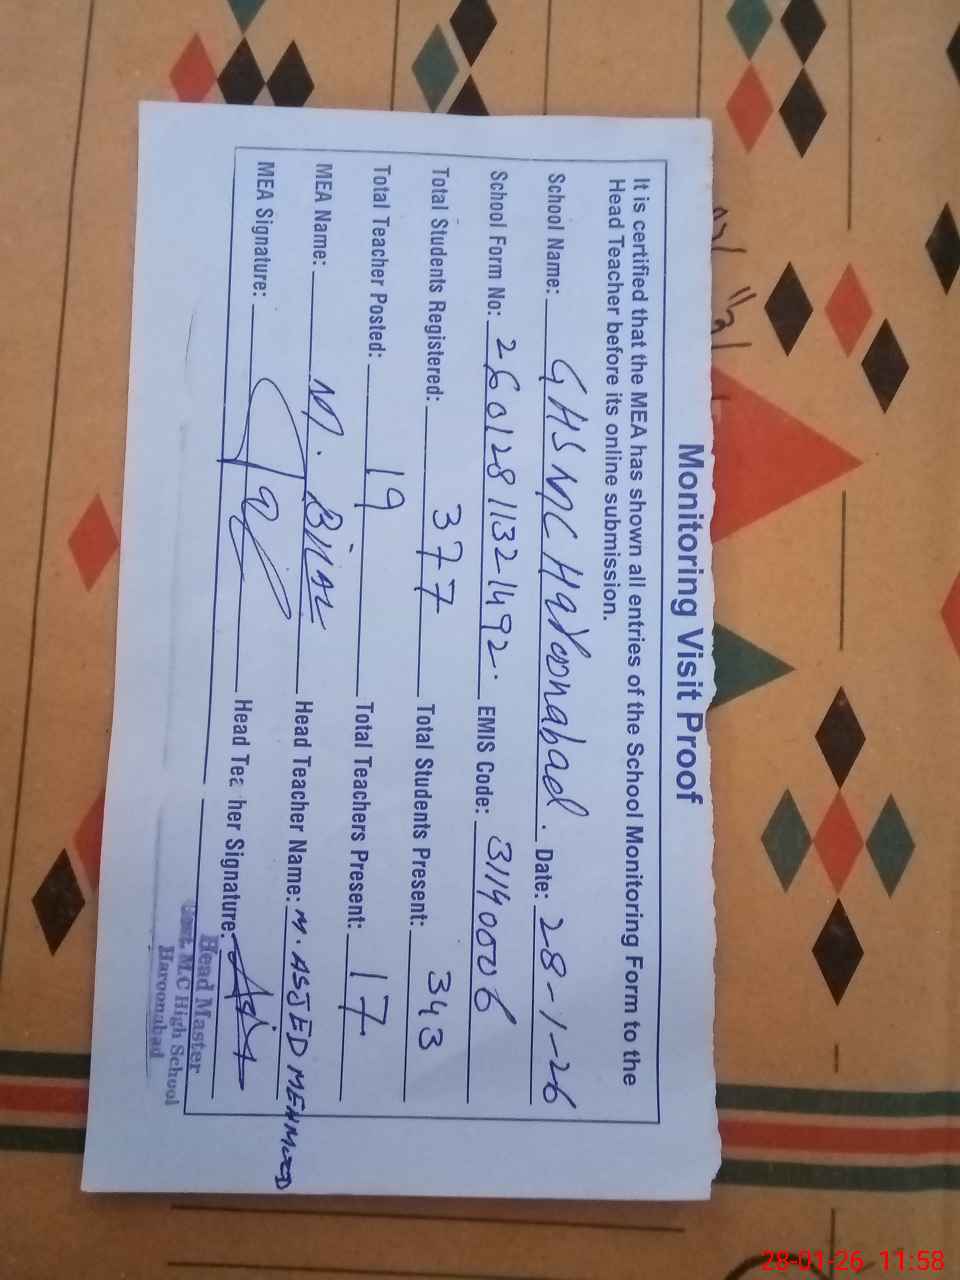 Monitoring Visit Proof
It is certified that the MEA has shown all entries of the School Monitoring Form to the
Head Teacher before its online submission.
School Name: GHS MC Haroonabad. Date: 28-1-26
School Form No: 26012811321492. EMIS Code: 31140006
Total Students Registered: 377 Total Students Present: 343
Total Teacher Posted: 19 Total Teachers Present: 17
MEA Name: M. BilAL Head Teacher Name: M. ASJED MEHMOOD
MEA Signature: Head Teacher Signature:
Head Master
Govt. M.C High School
Haroonabad
28-01-26 11:58